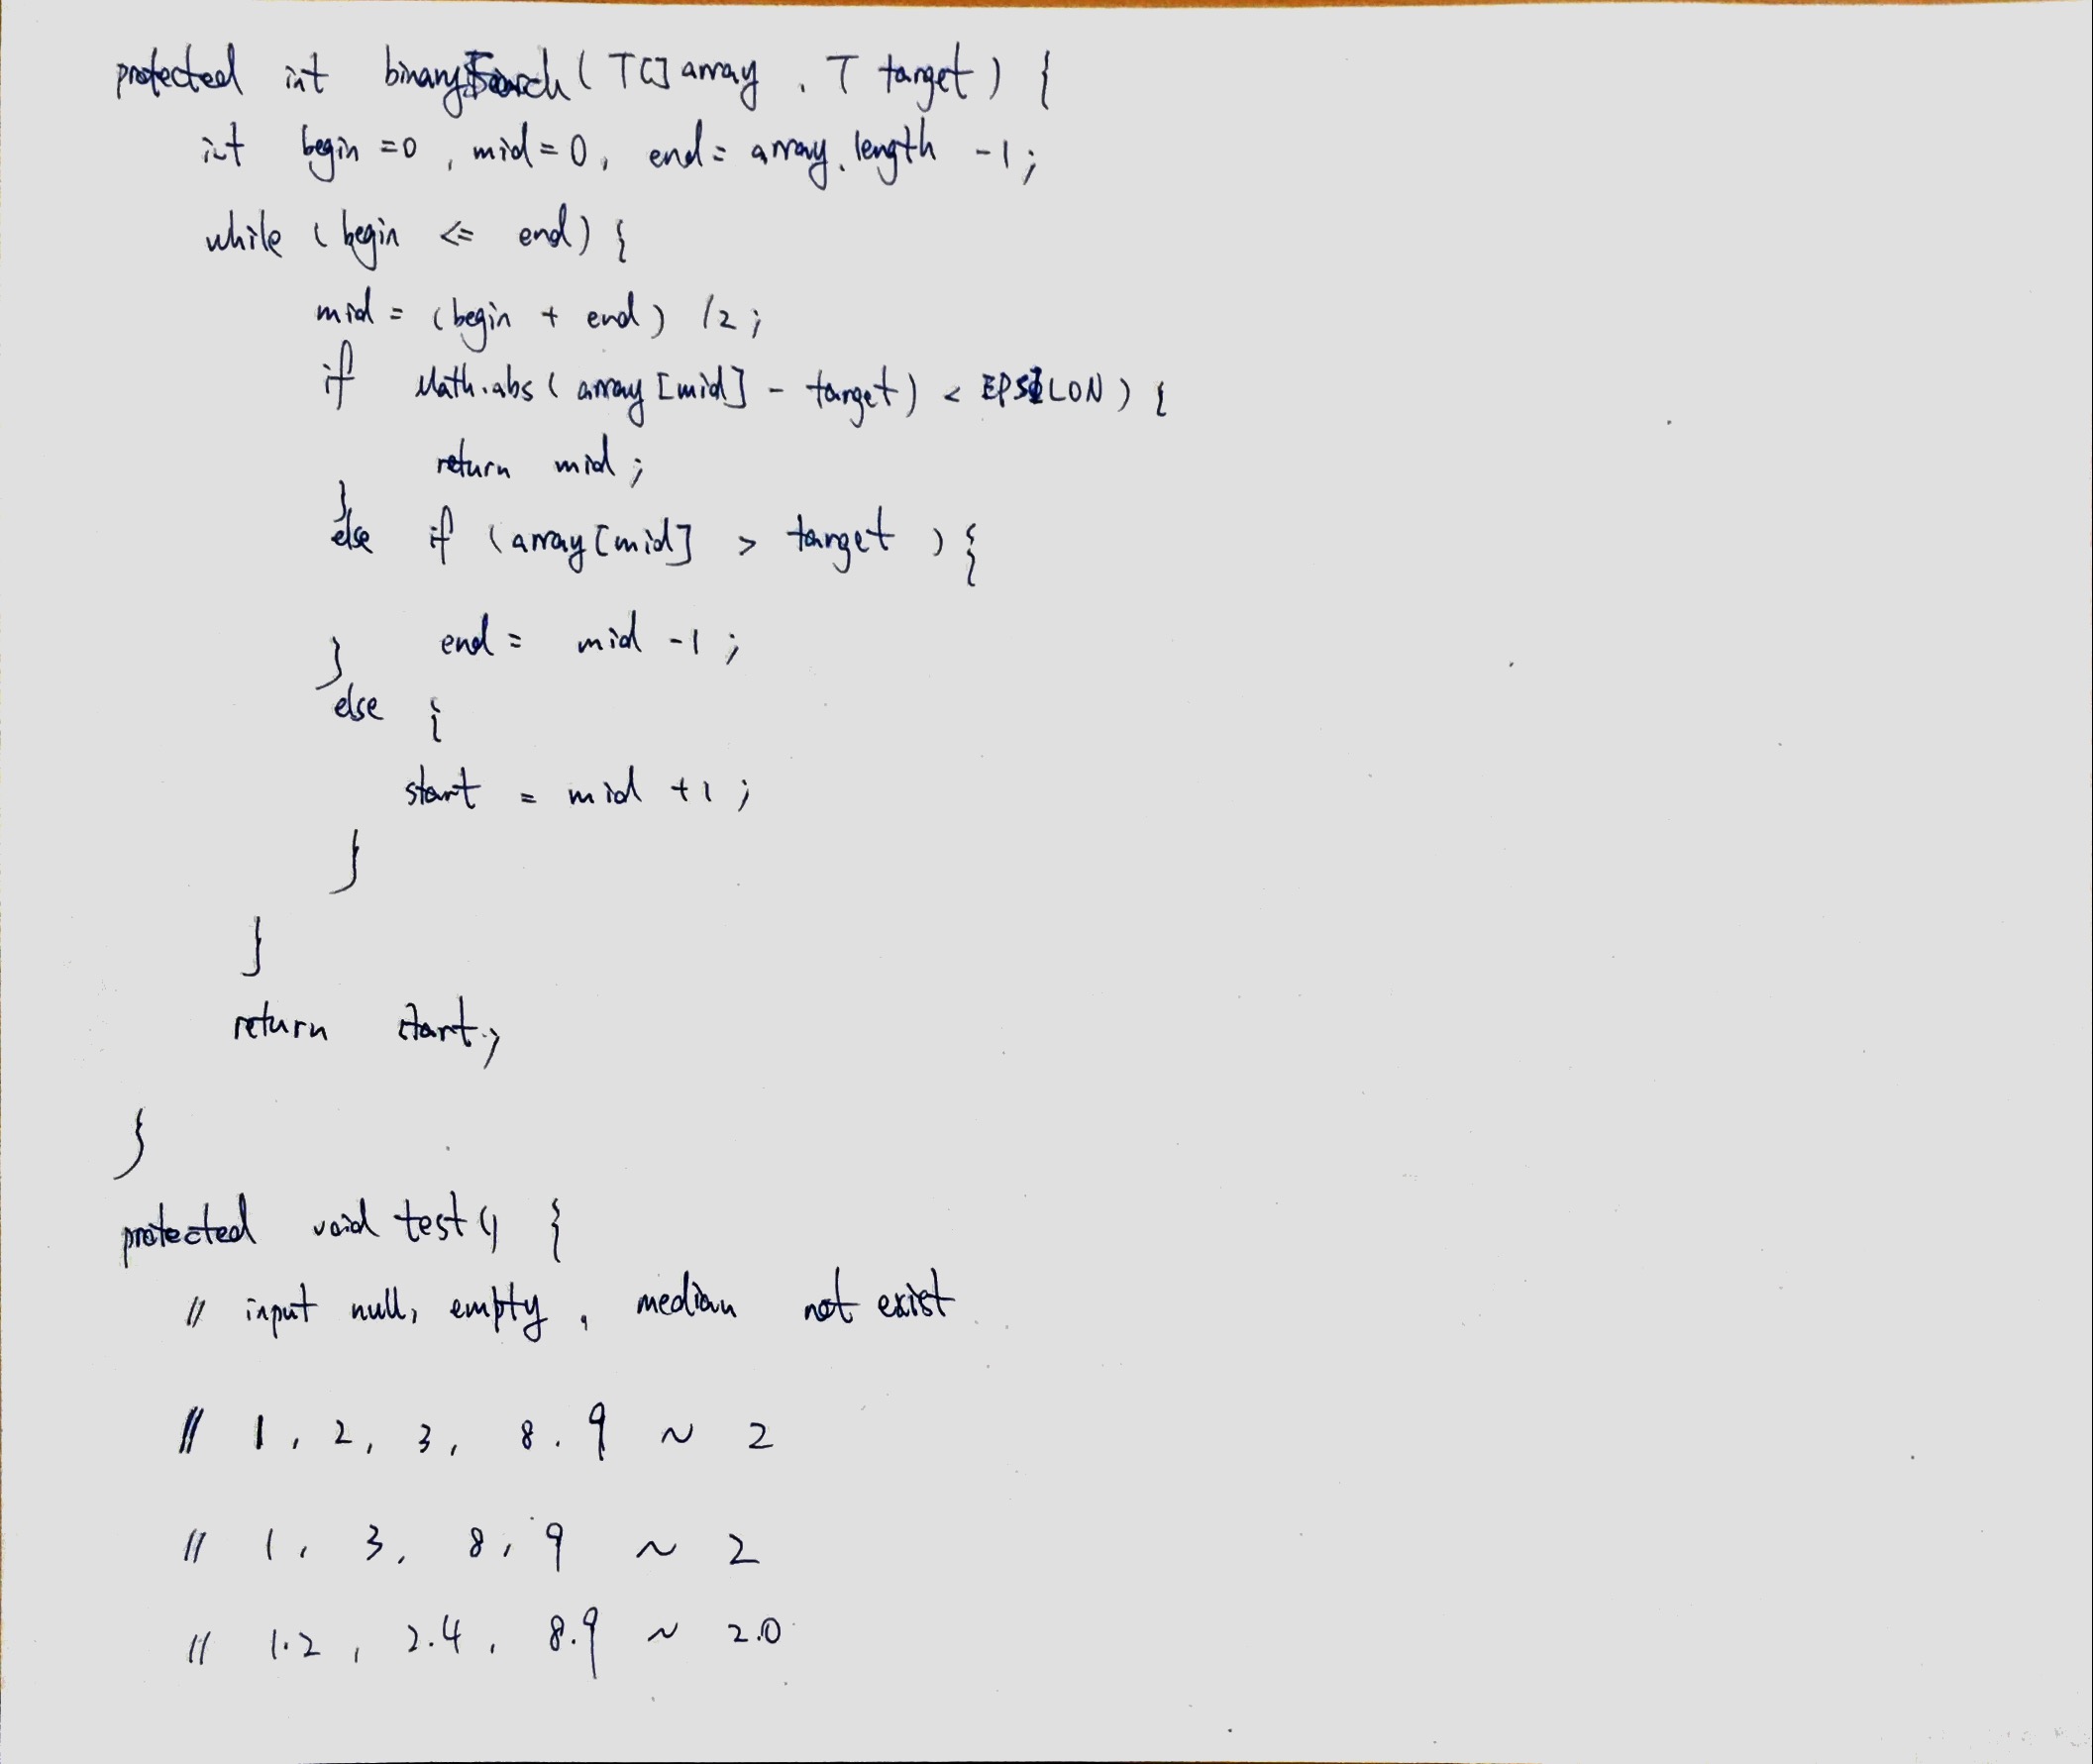 protected int binarySearch ( T[] array , T target ) {
int begin = 0 , mid = 0 , end = array . length - 1 ;
while ( begin <= end ) {
mid = ( begin + end ) / 2 ;
if Math.abs ( array [mid] - target ) < EPSILON ) {
return mid ;
}
else if ( array [mid] > target ) {
end = mid - 1 ;
}
else {
start = mid + 1 ;
}
}
return start ;
}
protected void test () {
// input null, empty , median not exist
// 1 , 2 , 3 , 8 . 9 ~ 2
// 1 , 3 , 8 , 9 ~ 2
// 1.2 , 2.4 , 8.9 ~ 2.0